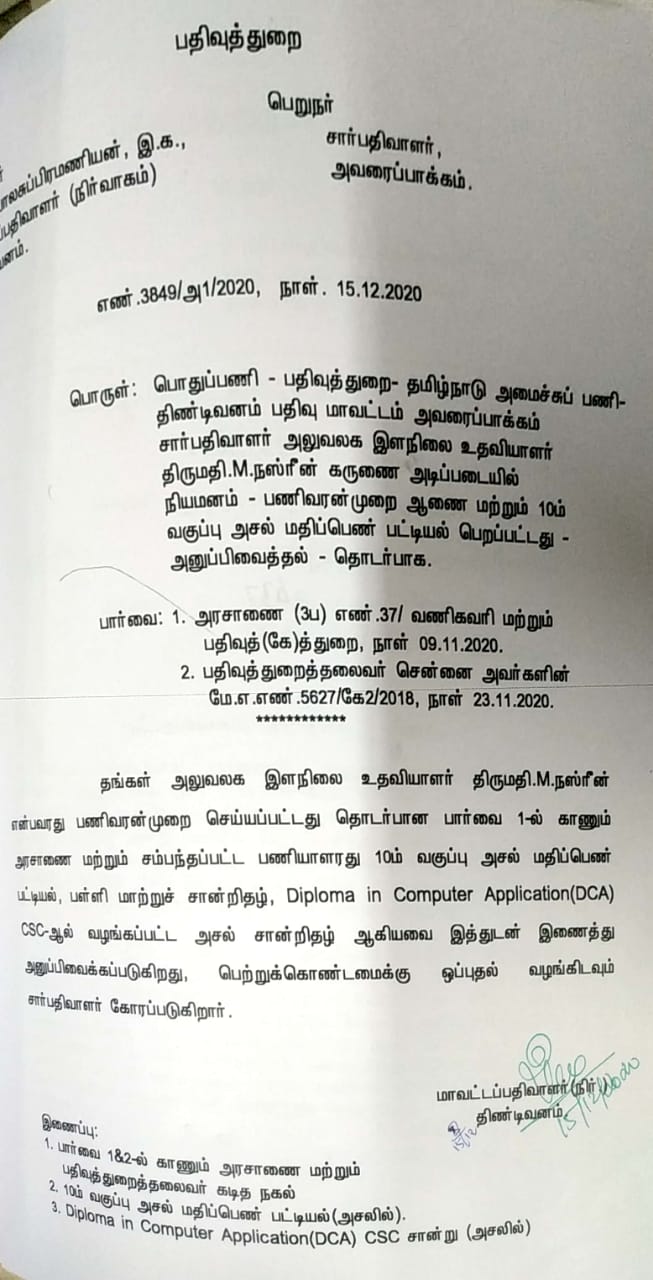 பதிவுத்துறை
பெறுநர்
பாலசுப்பிரமணியன், இ.க.,
பதிவாளர் (நிர்வாகம்)
வனம்.
சார்பதிவாளர்,
அவரைப்பாக்கம்.
எண்.3849/அ1/2020, நாள். 15.12.2020
பொருள்: பொதுப்பணி - பதிவுத்துறை- தமிழ்நாடு அமைச்சுப் பணி-
திண்டிவனம் பதிவு மாவட்டம் அவரைப்பாக்கம்
சார்பதிவாளர் அலுவலக இளநிலை உதவியாளர்
திருமதி.M.நஸ்ரீன் கருணை அடிப்படையில்
நியமனம் - பணிவரன்முறை ஆணை மற்றும் 10ம்
வகுப்பு அசல் மதிப்பெண் பட்டியல் பெறப்பட்டது -
அனுப்பிவைத்தல் - தொடர்பாக.
பார்வை: 1. அரசாணை (3ப) எண்.37/ வணிகவரி மற்றும்
பதிவுத்(கே)த்துறை, நாள் 09.11.2020.
2. பதிவுத்துறைத்தலைவர் சென்னை அவர்களின்
மே.எ.எண்.5627/கே2/2018, நாள் 23.11.2020.
************
தங்கள் அலுவலக இளநிலை உதவியாளர் திருமதி.M.நஸ்ரீன்
என்பவரது பணிவரன்முறை செய்யப்பட்டது தொடர்பான பார்வை 1-ல் காணும்
அரசாணை மற்றும் சம்பந்தப்பட்ட பணியாளரது 10ம் வகுப்பு அசல் மதிப்பெண்
பட்டியல், பள்ளி மாற்றுச் சான்றிதழ், Diploma in Computer Application(DCA)
CSC-ஆல் வழங்கப்பட்ட அசல் சான்றிதழ் ஆகியவை இத்துடன் இணைத்து
அனுப்பிவைக்கப்படுகிறது, பெற்றுக்கொண்டமைக்கு ஒப்புதல் வழங்கிடவும்
சார்பதிவாளர் கோரப்படுகிறார்.
மாவட்டப்பதிவாளர்(நிர்.)
திண்டிவனம்
15/12
15/12/2020
இணைப்பு:
1. பார்வை 1&2-ல் காணும் அரசாணை மற்றும்
பதிவுத்துறைத்தலைவர் கடித நகல்
2. 10ம் வகுப்பு அசல் மதிப்பெண் பட்டியல்(அசலில்).
3. Diploma in Computer Application(DCA) CSC சான்று (அசலில்)